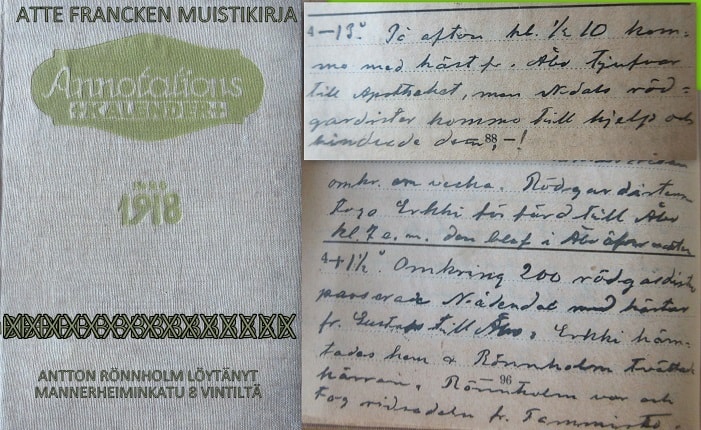 ATTE FRANCKEN MUISTIKIRJA
Annotations
KALENDER
1918
ANTTON RÖNNHOLM LÖYTÄNYT
MANNERHEIMINKATU 8 VINTILTÄ
4–13°. På afton kl. ½ 10 kom-
mo med häst fr. Åbo Tjufvar
till Apotheket, men N-dals röd-
gardister kommo till hjelp och
hindrade dem, –!
88
omkr. en vecka. Rödgardisten
togo Erkki för färd till Åbo
kl. 7 e. m. den blef i Åbo öfver natten
4+1½°. Omkring 200 rödgardister
passerade Nådendal med hästar
fr. Gustafs till Åbo, Erkki häm-
tades hem & Rönnholm tvättade
kärran, Rönnholm var och
96
tog ridsadeln fr. Tammisto.